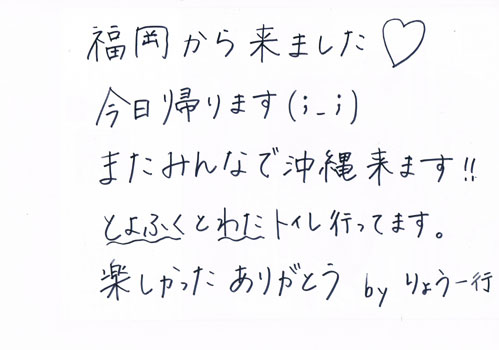 福岡から来ました♡
今日帰ります(;_;)
またみんなで沖縄来ます!!
とよふくとわたトイレ行ってます。
楽しかった ありがとう by りょう一行